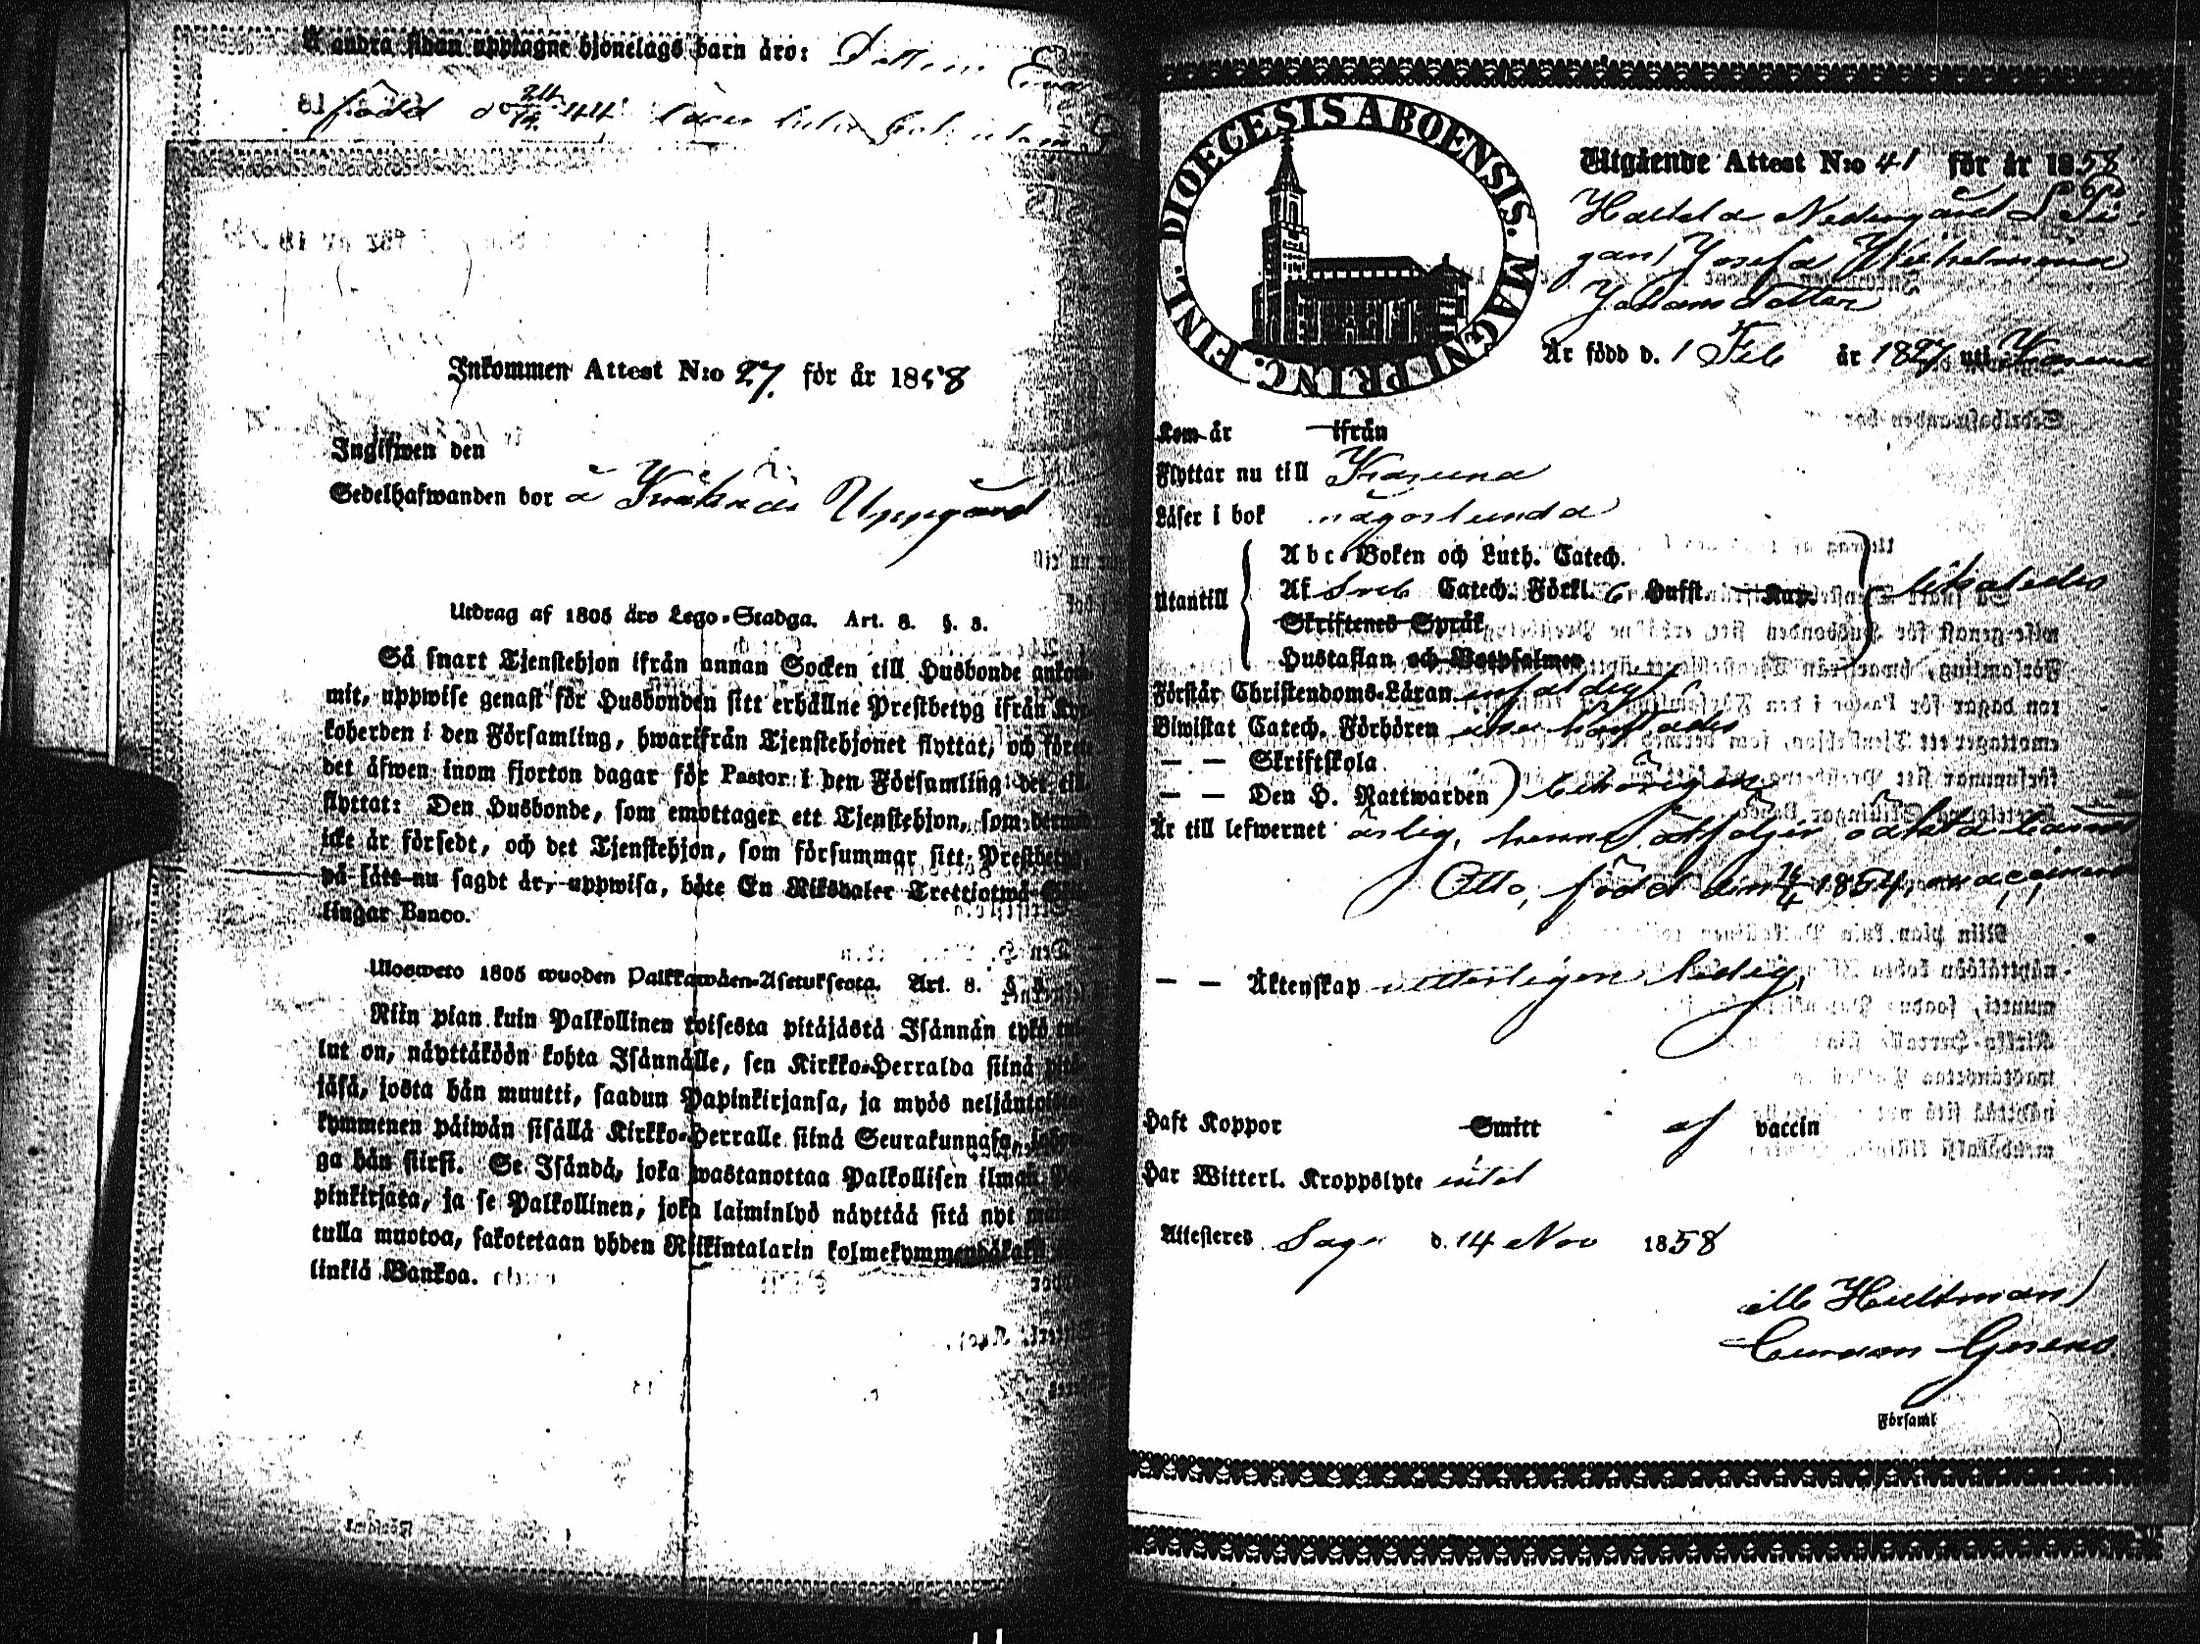 å andra sidan upptagne hjonelags barn äro:
född d 24/12 44
Inkommen Attest N:o 27. för år 1858
Ingifwen den
Sedelhafwanden bor å Uppgård
Utdrag af 1805 års Lego-Stadga. Art. 8. §. 3.
Så snart Tjenstehjon ifrån annan Socken till Husbonde ankom-
mit, uppwise genast för Husbonden sitt erhållne Prestbetyg ifrån Kyr-
koherden i den Församling, hwarifrån Tjenstehjonet flyttat, och förete
det äfwen inom fjorton dagar för Pastor i den Församling det till-
flyttat: Den Husbonde, som emottager ett Tjenstehjon, som dermed
icke är försedt, och det Tjenstehjon, som försummar sitt Prestbetyg
på sätt nu sagdt är, uppwisa, böte En Riksdaler Trettiotwå Skil-
lingar Banco.
Ulosweto 1805 wuoden Palkkawäen-Asetuksesta. Art. 8. § 3.
Niin pian kuin Palkollinen toisesta pitäjästä Isännän tykö tul-
lut on, näyttäköön kohta Isännälle, sen Kirkko-Herralda siinä pitä-
jäsä, josta hän muutti, saadun Papinkirjansa, ja myös neljäntoista-
kymmenen päiwän sisällä Kirkko-Herralle siinä Seurakunnasa, johon-
ga hän siirsi. Se Isändä, joka wastanottaa Palkollisen ilman Pa-
pinkirjata, ja se Palkollinen, joka laiminlyö näyttää sitä nyt
tulla muotoa, sakotetaan yhden Riikintalarin kolmekymmendäkaksi
linkiä Bankoa.
DIOECESIS ABOENSIS. MAGNI PRINC. FINL.
Utgående Attest N:o 41 för år 1858
Nedergård Pi-
gan Josefa Wilhelmina
Johansdotter
Är född d. 1 Feb år 1827 uti Karuna
Kom år ifrån
Flyttar nu till Karuna
Läser i bok någorlunda
Utantill
Abc-Boken och Luth. Catech.
Af Sveb Catech. Förkl. 6 Hufst. Kap.
Skriftenes Språk
Hustaflan och Botpsalmer
likaledes
Förstår Christendoms-Läran enfaldigt
Biwistat Catech. Förhören
— — Skriftskola
— — Den H. Nattwarden
behörigen
Är till lefwernet ärlig, henne åtföljer oäkta barnet
Otto, född den 16/4 1854, vaccinerad
— — Äktenskap witterligen ledig.
Haft Koppor Smitt af vaccin
Har Witterl. Kroppslyte intet
Attesteras Sagu d. 14 Nov 1858
Hultman
Församl